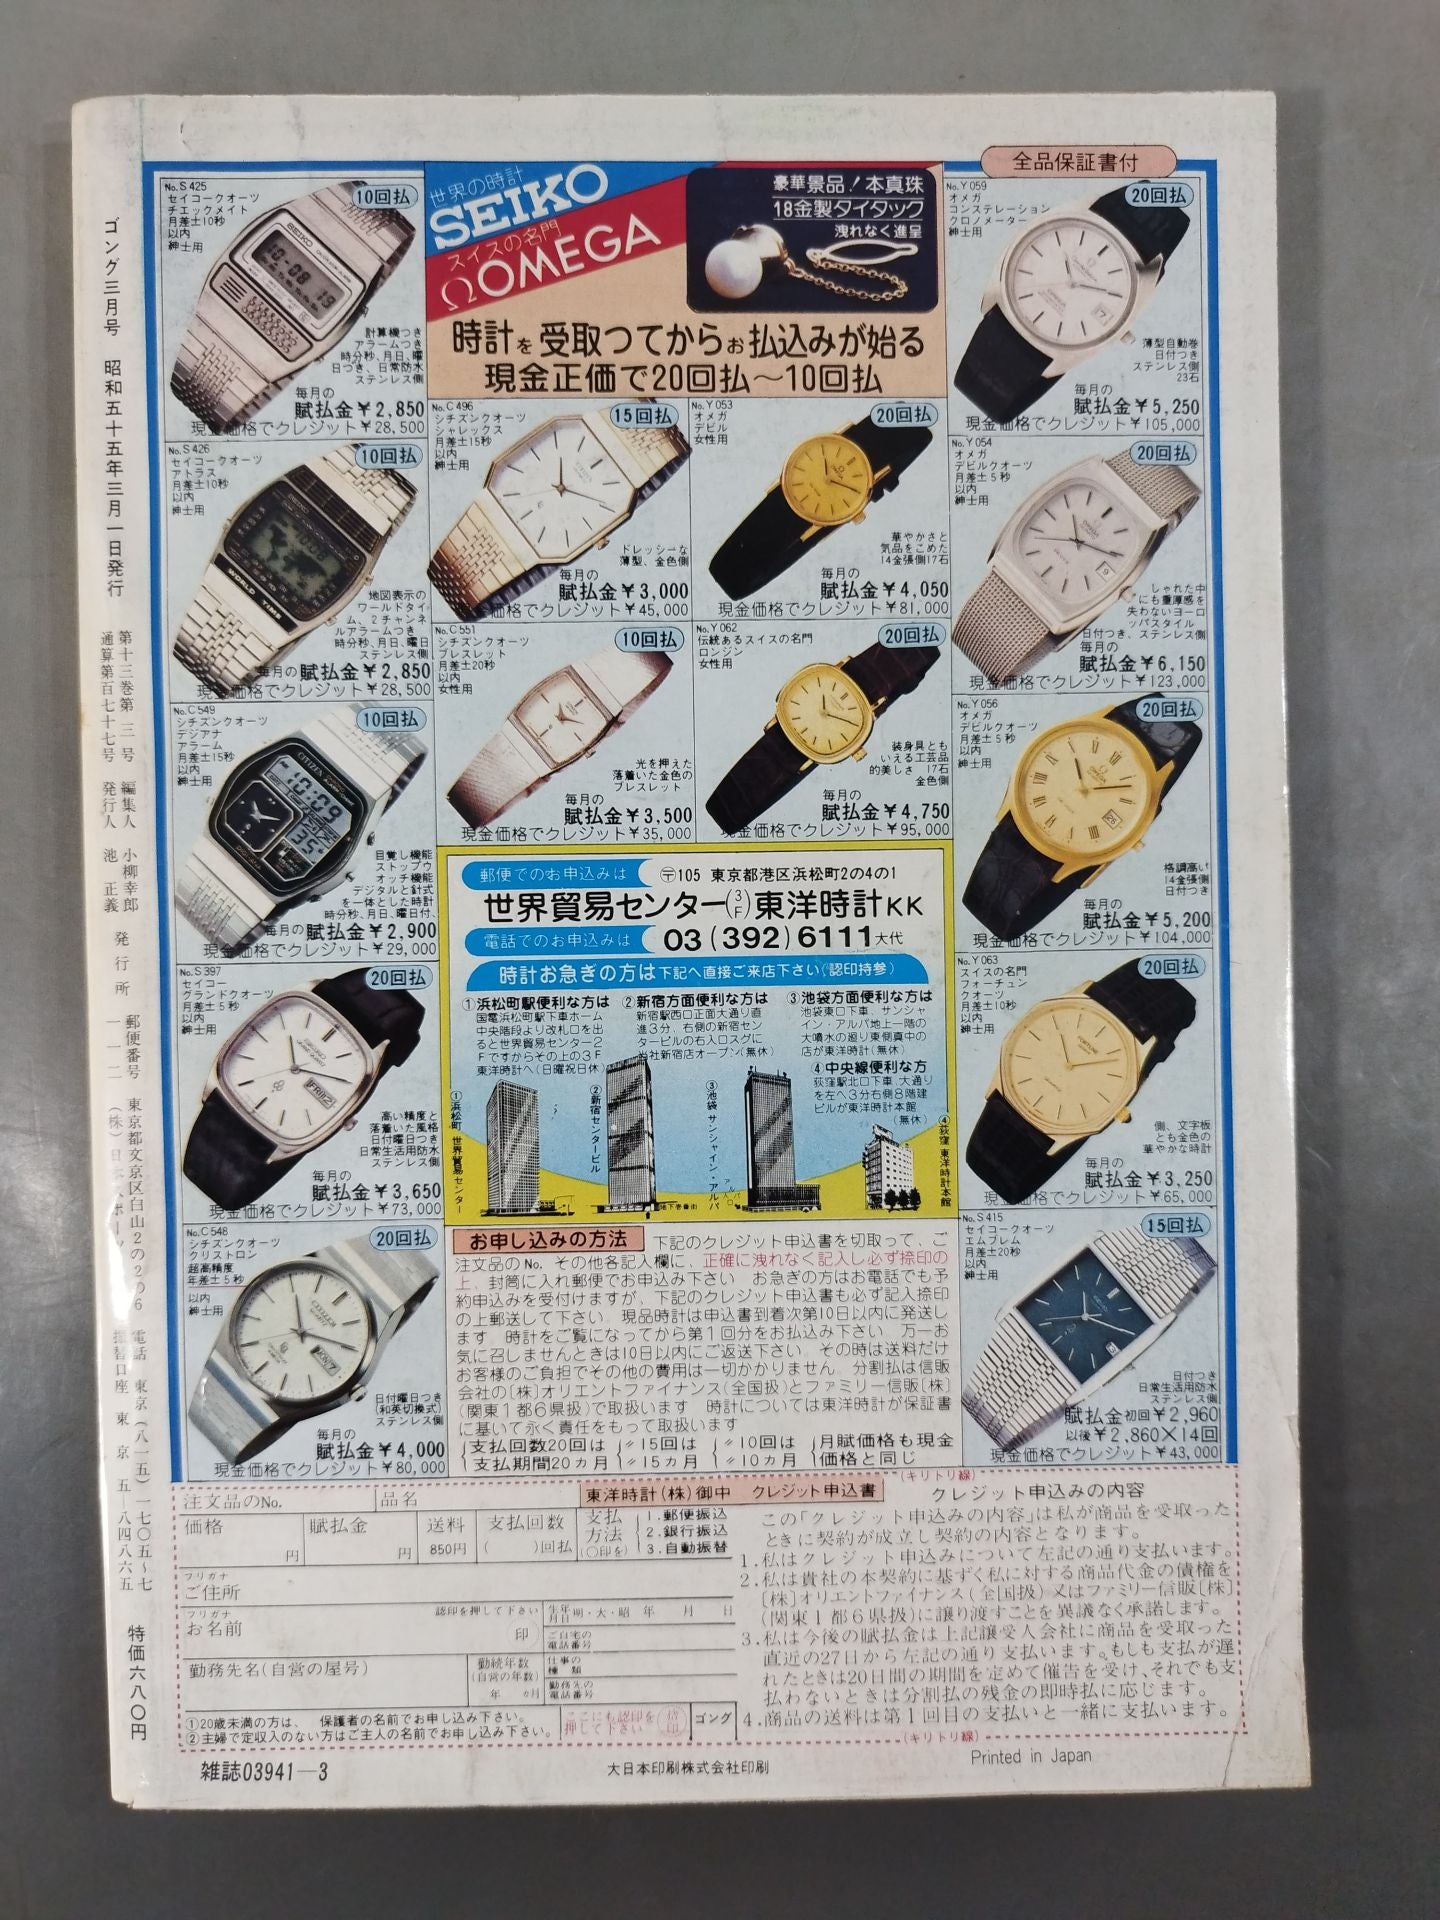 全品保証書付
世界の時計
SEIKO
スイスの名門
ΩOMEGA
豪華景品！本真珠
18金製タイタック
洩れなく進呈
時計を受取ってからお払込みが始る
現金正価で20回払〜10回払
No.S425
セイコークオーツ
チエックメイト
月差±10秒
以内
紳士用
10回払
計算機つき
アラームつき
時分秒、月日、曜
日つき、日常防水
ステンレス側
毎月の
賦払金￥2,850
現金価格でクレジット￥28,500
No.S426
セイコークオーツ
アトラス
月差±10秒
以内
紳士用
10回払
地図表示の
ワールドタイ
ム、2チャンネ
ルアラームつき
時分秒、月日、曜日
ステンレス側
毎月の賦払金￥2,850
現金価格でクレジット￥28,500
No.C549
シチズンクオーツ
デジアナ
アラーム
月差±15秒
以内
紳士用
10回払
目覚し機能
ストップウ
オッチ機能
デジタルと針式
を一体とした時計
時分秒、月日、曜日付、
毎月の賦払金￥2,900
現金価格でクレジット￥29,000
No.S397
セイコー
グランドクオーツ
月差±5秒
以内
紳士用
20回払
高い精度と
落着いた風格
日付曜日つき
日常生活用防水
ステンレス側
毎月の
賦払金￥3,650
現金価格でクレジット￥73,000
No.C548
シチズンクオーツ
クリストロン
超高精度
年差±5秒
以内
紳士用
20回払
日付曜日つき
(和英切換式)
ステンレス側
毎月の
賦払金￥4,000
現金価格でクレジット￥80,000
No.C496
シチズンクオーツ
シャレックス
月差±15秒
以内
紳士用
15回払
ドレッシーな
薄型、金色側
毎月の
賦払金￥3,000
現金価格でクレジット￥45,000
No.Y053
オメガ
デビル
女性用
20回払
華やかさと
気品をこめた
14金張側17石
毎月の
賦払金￥4,050
現金価格でクレジット￥81,000
No.C551
シチズンクオーツ
ブレスレット
月差±20秒
以内
女性用
10回払
光を押えた
落着いた金色の
ブレスレット
毎月の
賦払金￥3,500
現金価格でクレジット￥35,000
No.Y062
伝統あるスイスの名門
ロンジン
女性用
20回払
装身具とも
いえる工芸品
的美しさ 17石
金色側
毎月の
賦払金￥4,750
現金価格でクレジット￥95,000
No.Y059
オメガ
コンステレーション
クロノメーター
紳士用
20回払
薄型自動巻
日付つき
ステンレス側
23石
毎月の
賦払金￥5,250
現金価格でクレジット￥105,000
No.Y054
オメガ
デビルクオーツ
月差±5秒
以内
紳士用
20回払
しゃれた中
にも重厚感を
失わないヨーロ
ッパスタイル
日付つき、ステンレス側
毎月の
賦払金￥6,150
現金価格でクレジット￥123,000
No.Y056
オメガ
デビルクオーツ
月差±5秒
以内
紳士用
20回払
格調高い
14金張側
日付つき
毎月の
賦払金￥5,200
現金価格でクレジット￥104,000
No.Y063
スイスの名門
フォーチュン
クオーツ
月差±10秒
以内
紳士用
20回払
側、文字板
とも金色の
華やかな時計
毎月の
賦払金￥3,250
現金価格でクレジット￥65,000
No.S415
セイコークオーツ
エムブレム
月差±20秒
以内
紳士用
15回払
日付つき
日常生活用防水
ステンレス側
賦払金初回￥2,960
以後￥2,860×14回
現金価格でクレジット￥43,000
郵便でのお申込みは
〒105 東京都港区浜松町2の4の1
世界貿易センター(3F)東洋時計KK
電話でのお申込みは
03(392)6111大代
時計お急ぎの方は下記へ直接ご来店下さい(認印持参)
①浜松町駅便利な方は
国電浜松町駅下車ホーム
中央階段より改札口を出
ると世界貿易センター2
Fですからその上の3F
東洋時計へ(日曜祝日休)
②新宿方面便利な方は
新宿駅西口正面大通り直
進3分、右側の新宿セン
タービルの右入口スグに
当社新宿店オープン(無休)
③池袋方面便利な方は
池袋東口下車、サンシャ
イン・アルパ地上一階の
大噴水の廻り東側真中の
店が東洋時計(無休)
④中央線便利な方
荻窪駅北口下車、大通り
を左へ3分右側8階建
ビルが東洋時計本館
(無休)
①浜松町 世界貿易センター
②新宿センタービル
③池袋サンシャイン・アルパ
④荻窪 東洋時計本館
お申し込みの方法
下記のクレジット申込書を切取って、ご
注文品のNo.その他各記入欄に、正確に洩れなく記入し必ず捺印の
上、封筒に入れ郵便でお申込み下さい　お急ぎの方はお電話でも予
約申込みを受付けますが、下記のクレジット申込書も必ず記入捺印
の上郵送して下さい　現品時計は申込書到着次第10日以内に発送し
ます　時計をご覧になってから第1回分をお払込み下さい　万一お
気に召しませんときは10日以内にご返送下さい　その時は送料だけ
お客様のご負担でその他の費用は一切かかりません　分割払は信販
会社の〔株〕オリエントファイナンス(全国扱)とファミリー信販〔株〕
(関東1都6県扱)で取扱います　時計については東洋時計が保証書
に基いて永く責任をもって取扱います
支払回数20回は 〃15回は 〃10回は 月賦価格も現金
支払期間20ヵ月 〃15ヵ月 〃10ヵ月 価格と同じ
(キリトリ線)
注文品のNo.
品名
東洋時計(株)御中　クレジット申込書
価格
円
賦払金
円
送料
850円
支払回数
(　)回払
支払方法(○印を)
1.郵便振込
2.銀行振込
3.自動振替
フリガナ
ご住所
フリガナ
お名前
認印を押して下さい
印
生年月日 明・大・昭　年　月　日
ご自宅の電話番号
勤務先名(自営の屋号)
勤続年数
(自営の年数)
年　ヵ月
仕事の種類
勤務先の電話番号
①20歳未満の方は、保護者の名前でお申し込み下さい。
②主婦で定収入のない方はご主人の名前でお申し込み下さい。
ここにも認印を
押して下さい
捨印
ゴング
クレジット申込みの内容
この「クレジット申込みの内容」は私が商品を受取った
ときに契約が成立し契約の内容となります。
1.私はクレジット申込みについて左記の通り支払います。
2.私は貴社の本契約に基ずく私に対する商品代金の債権を
〔株〕オリエントファイナンス(全国扱)又はファミリー信販〔株〕
(関東1都6県扱)に譲り渡すことを異議なく承諾します。
3.私は今後の賦払金は上記譲受人会社に商品を受取った
直近の27日から左記の通り支払います。もしも支払が遅
れたときは20日間の期間を定めて催告を受け、それでも支
払わないときは分割払の残金の即時払に応じます。
4.商品の送料は第1回目の支払いと一緒に支払います。
(キリトリ線)
雑誌03941—3
大日本印刷株式会社印刷
Printed in Japan
ゴング三月号　昭和五十五年三月一日発行
第十三巻第三号　編集人　小柳幸郎　発行所　郵便番号　東京都文京区白山2の2の6　電話　東京(八一五)一七〇五〜七
通算第百七十七号　発行人　池　正義　一一二　(株)日本スポーツ　振替口座　東京五—八四八六五
特価六八〇円